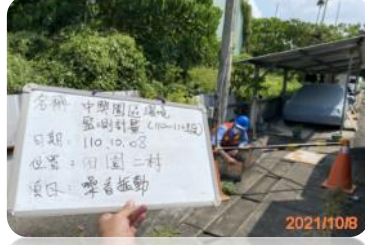 名稱：中興園區環境
監測計畫（110~111年度）
日期：110.10.08
位置：田園二村
項目：噪音振動
2021/10/8